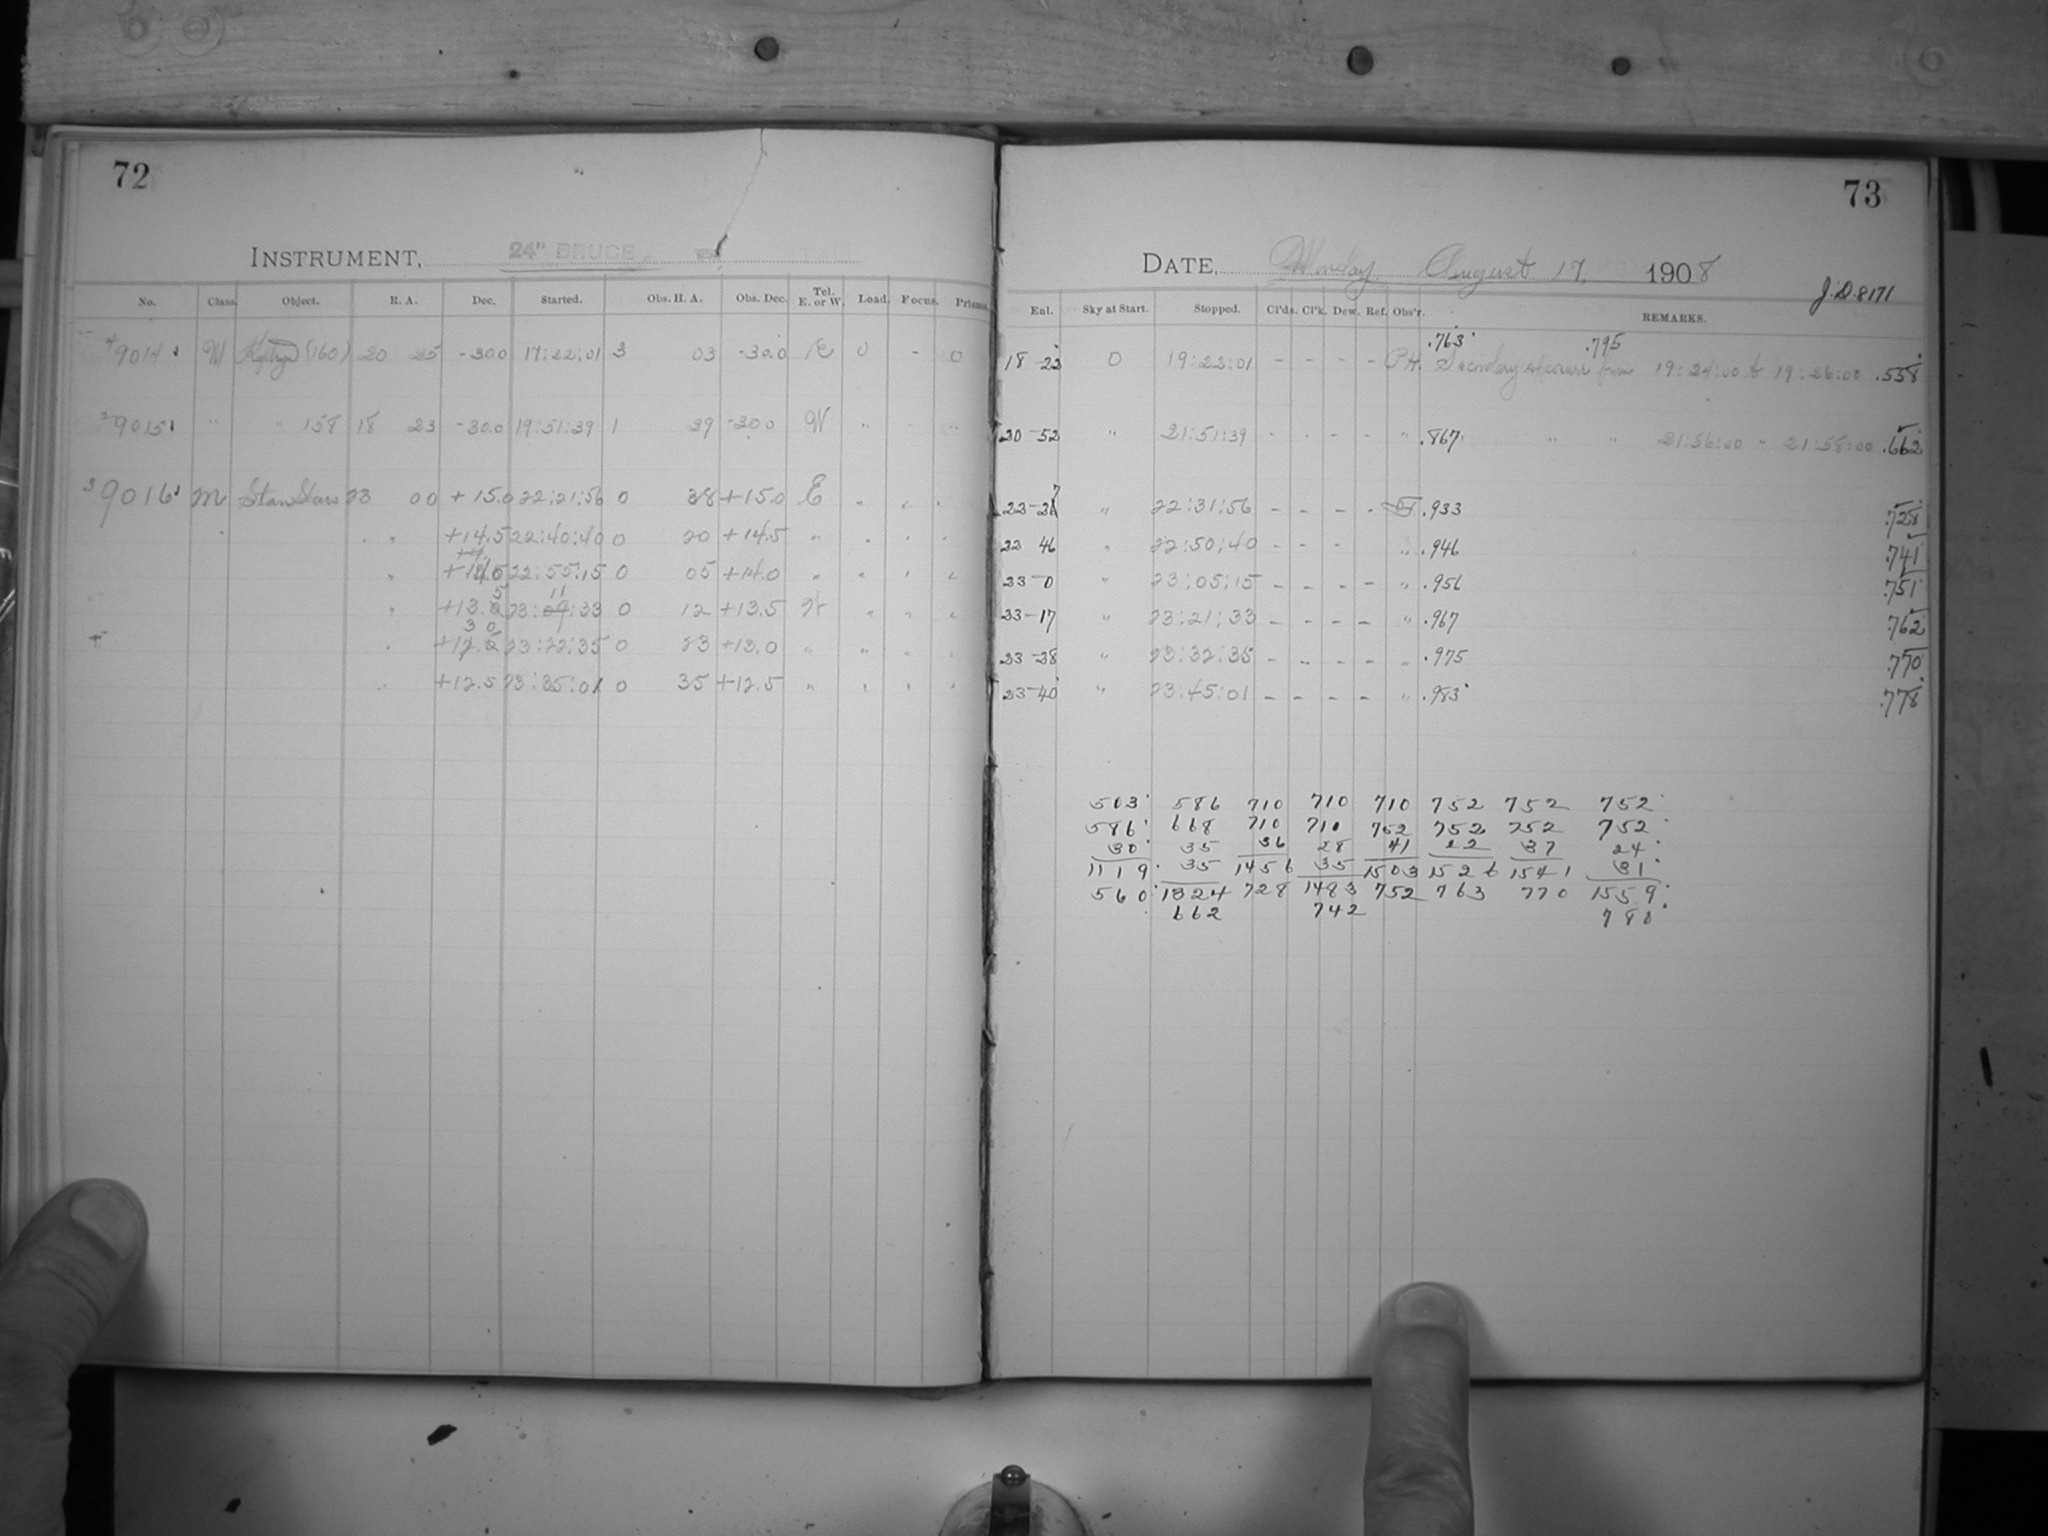 72
INSTRUMENT, 24" BRUCE
No. Class. Object. R. A. Dec. Started. Obs. H. A. Obs. Dec. Tel. E. or W. Load. Focus. Prisms.
9014 M (160) 20 25 -30.0 17:22:01 3 03 -30.0 E 0 - 0
9015 " " 158 18 23 -30.0 19:51:39 1 29 -30.0 W " - "
3 9016 M Stan Stars 23 00 +15.0 22:21:56 0 38 +15.0 E " " "
" +14.5 22:40:40 0 20 +14.5 " " " "
" +14.0 22:55:15 0 05 +14.0 " " " "
" +13.5 23:11:33 0 12 +13.5 W " " "
" +13.0 23:22:35 0 23 +13.0 " " " "
" +12.5 23:35:01 0 35 +12.5 " " " "
73
DATE, Monday August 17, 1908
J.D. 8171
Enl. Sky at Start. Stopped. Cl'ds. Cl'k. Dew. Ref. Obs'r. REMARKS.
.763 .795
18-23 0 19:22:01 - - - - P.H. Secondary exposure from 19:24:00 to 19:26:00 .558
20-52 " 21:51:39 - - - - " .867 " " 21:56:00 - 21:58:00 .662
22-27 " 22:31:56 - - - - .933 .728
22 46 " 22:50:40 - - - " .946 .741
23-0 " 23:05:15 - - - - " .956 .751
23-17 " 23:21:33 - - - - " .967 .762
23-28 " 23:32:35 - - - - " .975 .770
23-40 " 23:45:01 - - - - " .983 .778
503 586 710 710 710 752 752 752
586 668 710 710 752 752 752 752
30 35 36 28 41 22 37 24
1119 35 1456 35 1503 1526 1541 31
560 1324 728 1483 752 763 770 1559
662 742 780